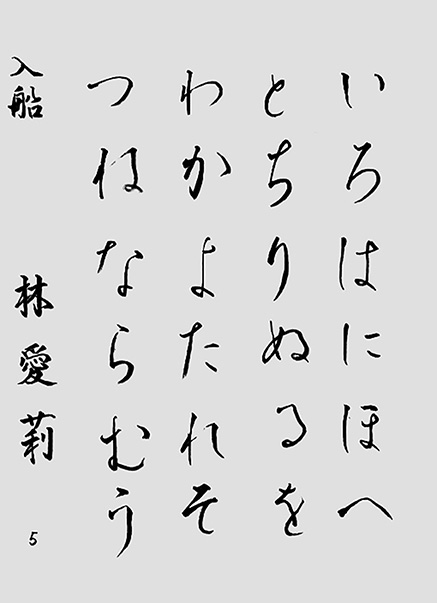 いろはにほへ
とちりぬるを
わかよたれそ
つねならむう
入船
林愛莉
5